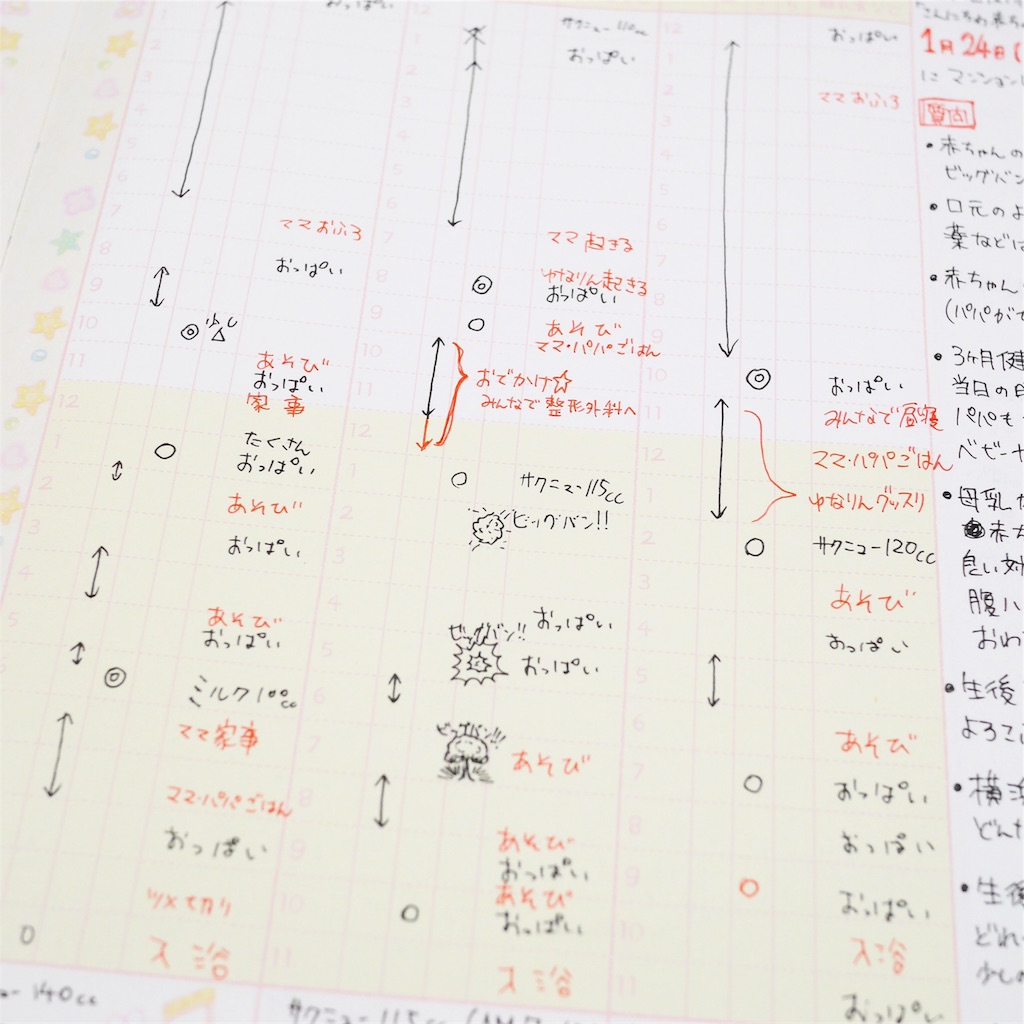 おっぱい
1
2
3
4
5
6
7
ママおふろ
8
おっぱい
9
10
少し
11
あそび
おっぱい
12
家事
1
たくさん
おっぱい
2
あそび
3
おっぱい
4
あそび
5
おっぱい
ミルク100cc
ママ家事
ママ・パパごはん
おっぱい
ツメ切り
入浴
140cc
12
サクニュー110cc
1
おっぱい
2
3
4
5
6
7
ママ起きる
8
ゆなりん起きる
おっぱい
9
あそび
10
ママ・パパごはん
11
おでかけ☆
みんなで整形外科へ
12
1
サクニュー115cc
2
ビッグバン!!
3
4
おっぱい
ビッグバン!!
5
おっぱい
6
ビッグバン!!
7
あそび
8
9
あそび
おっぱい
10
あそび
おっぱい
11
入浴
サクニュー115cc
12
おっぱい
1
2
ママおふろ
3
4
5
6
7
8
9
10
おっぱい
11
みんなで昼寝
12
ママ・パパごはん
1
ゆなりんグッスリ
2
サクニュー120cc
3
あそび
4
おっぱい
5
6
あそび
7
おっぱい
8
おっぱい
9
おっぱい
10
入浴
11
おっぱい
1月24日(
にマンション
質問
・赤ちゃんの
ビッグバン
・口元のよ
薬などは
・赤ちゃん
(パパがて
・3ヶ月健
当日の日
パパも
ベビーヤ
・母乳た
赤ち
良い妙
腹ハ
おわ
・生後
よろこ
・横浜
どんた
・生後
どれ
少しの